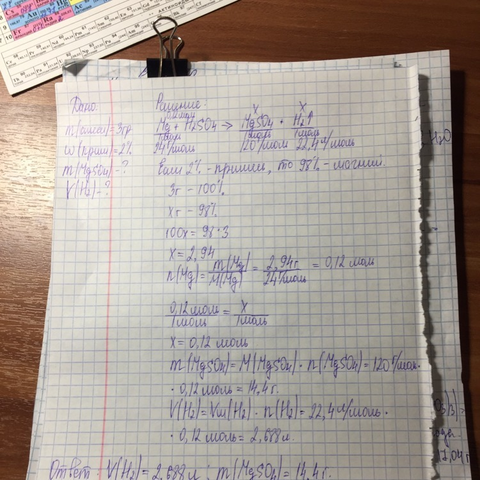 Дано:
Решение:
m(смеси)=3гр
w(прим)=2%
m(MgSO4)-?
V(H2)-?
0,12моль x x
Mg + H2SO4 → MgSO4 + H2↑
1моль 1моль 1моль
24г/моль 120г/моль 22,4л/моль
Если 2% - примеси, то 98% - магний
3г - 100%
xг - 98%
100x = 98·3
x = 2,94
n(Mg) = m(Mg)/M(Mg) = 2,94г/24г/моль = 0,12 моль
0,12моль/1моль = x/1моль
x = 0,12 моль
m(MgSO4) = M(MgSO4) · n(MgSO4) = 120г/моль·
· 0,12 моль = 14,4г.
V(H2) = Vm(H2) · n(H2) = 22,4л/моль·
· 0,12 моль = 2,688л.
Ответ: V(H2) = 2,688л; m(MgSO4) = 14,4г.
H2O